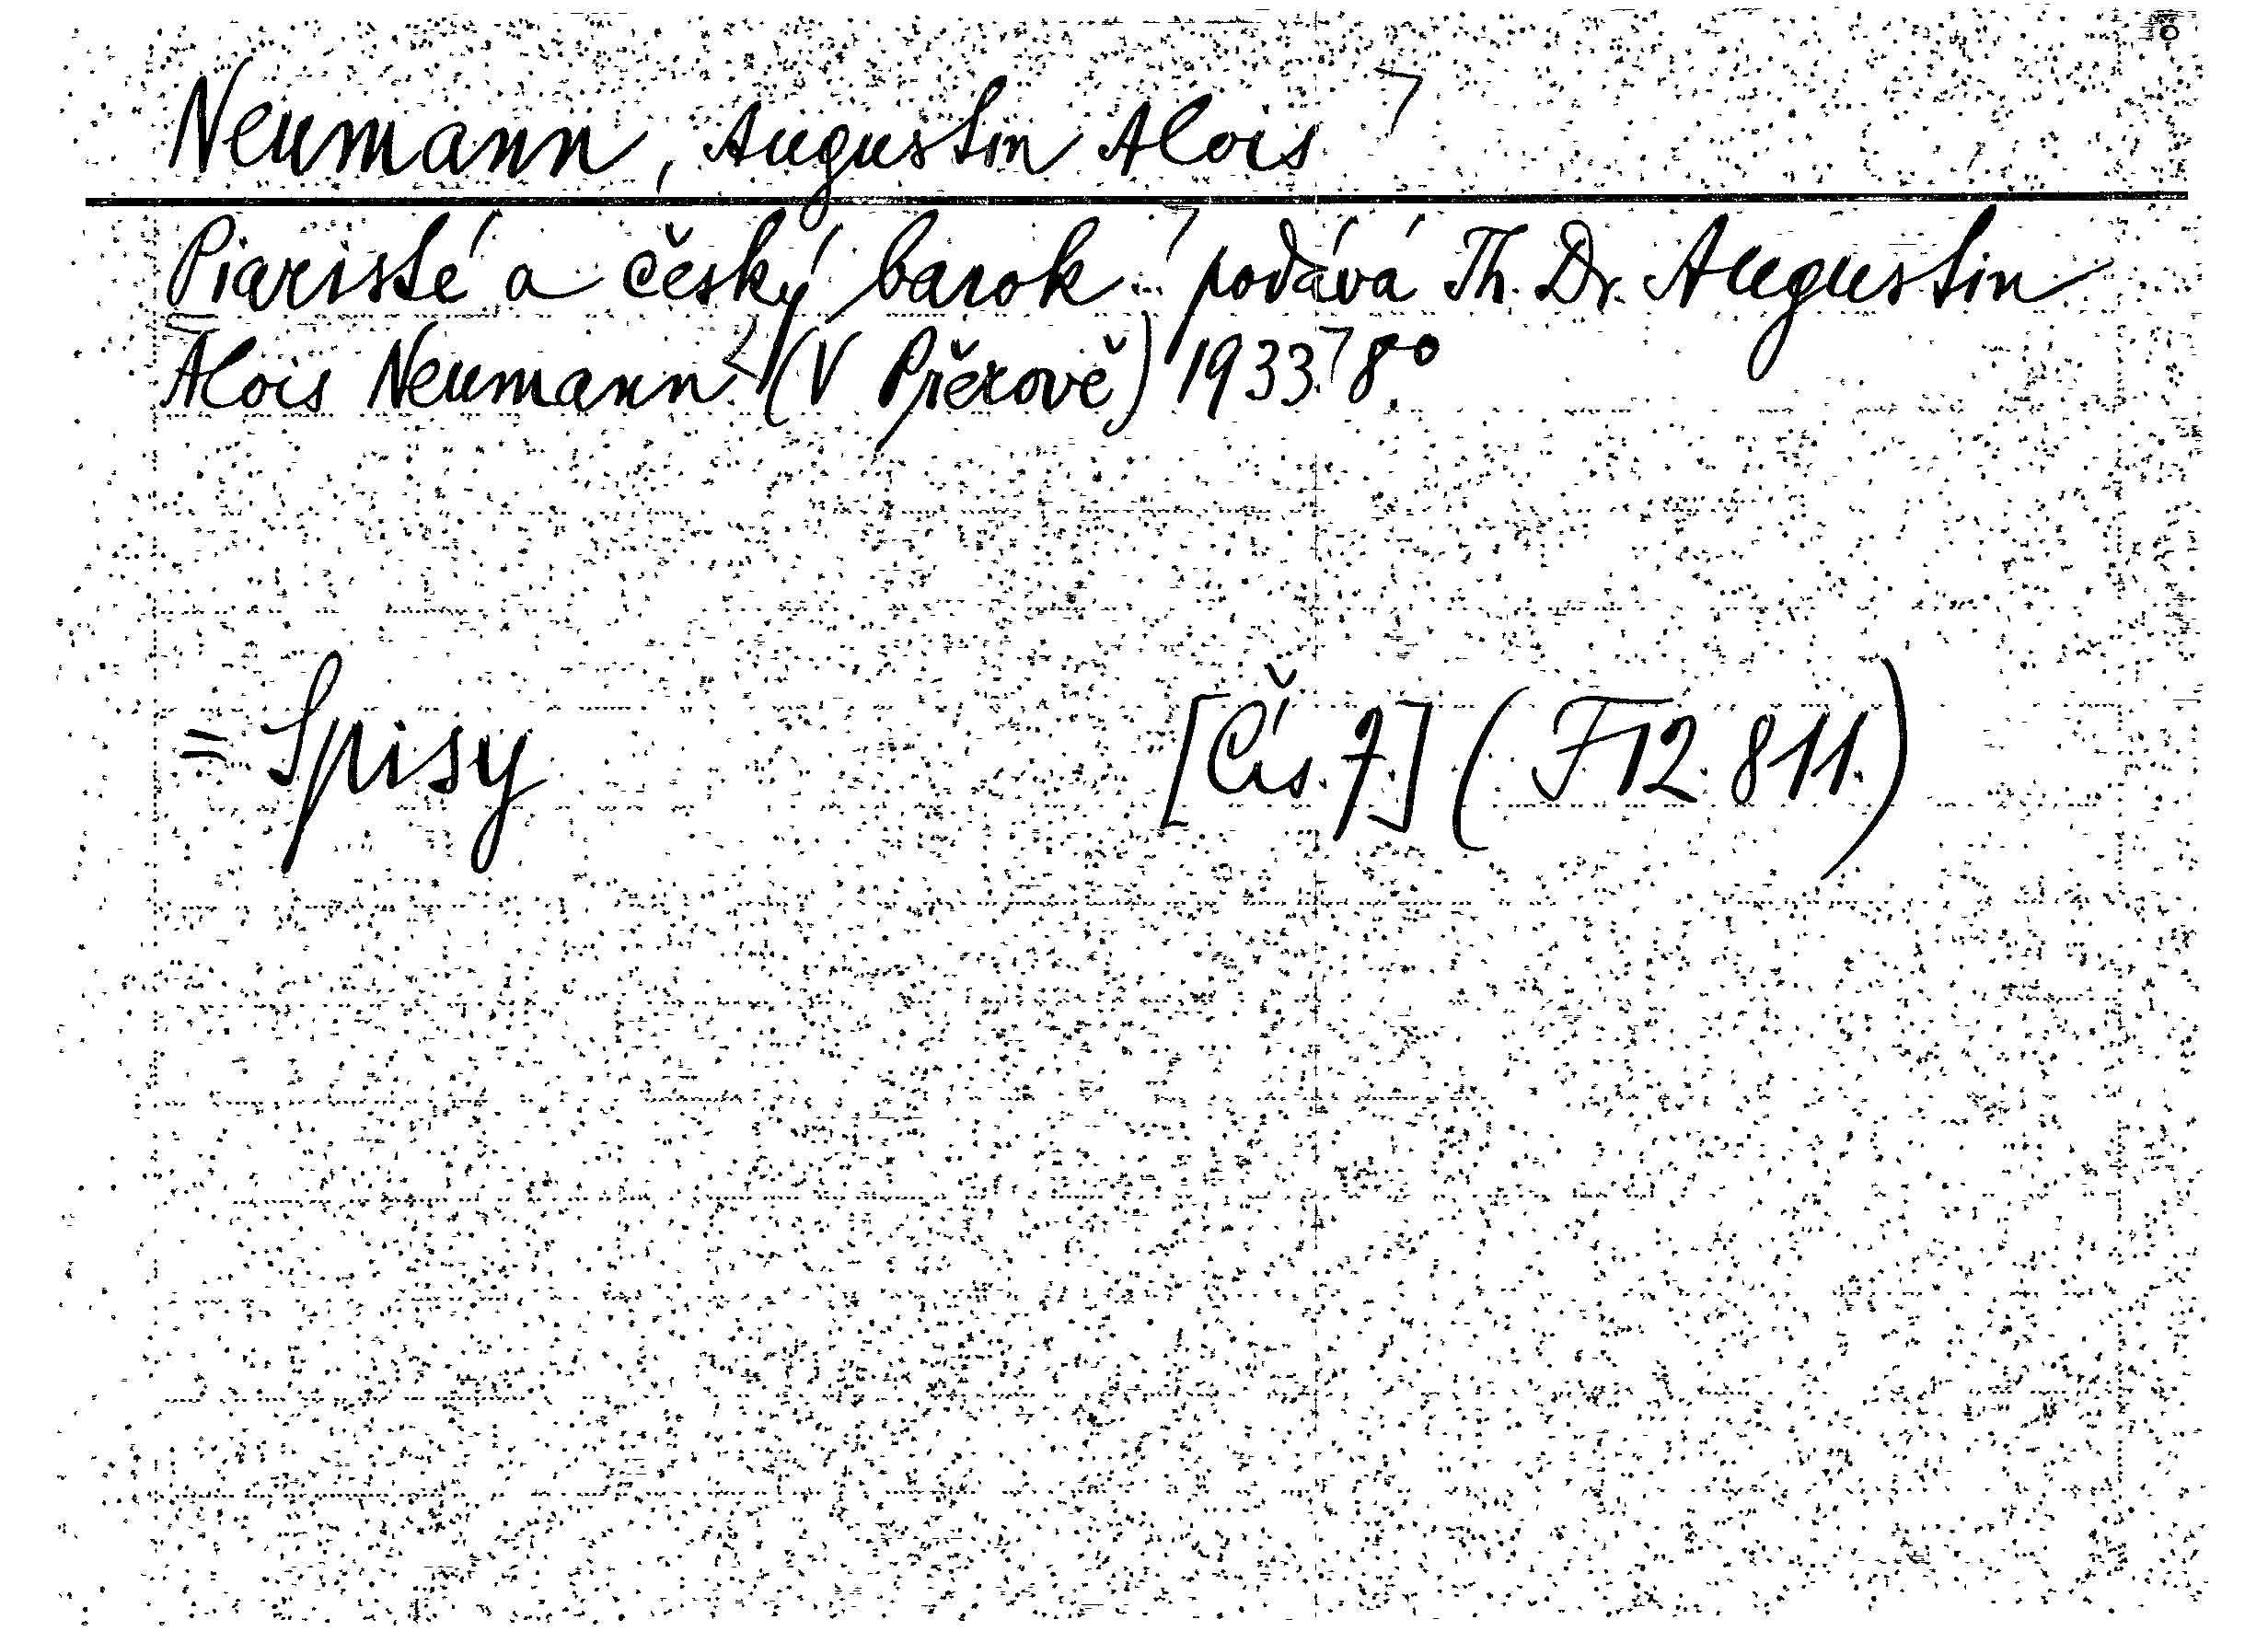 Neumann, Augustin Alois
Piaristé a český barok... podává Th. Dr. Augustin
Alois Neumann. (V Přerově) 1933. 8°.
= Spisy [Čís. 7.] (F 12.811.)